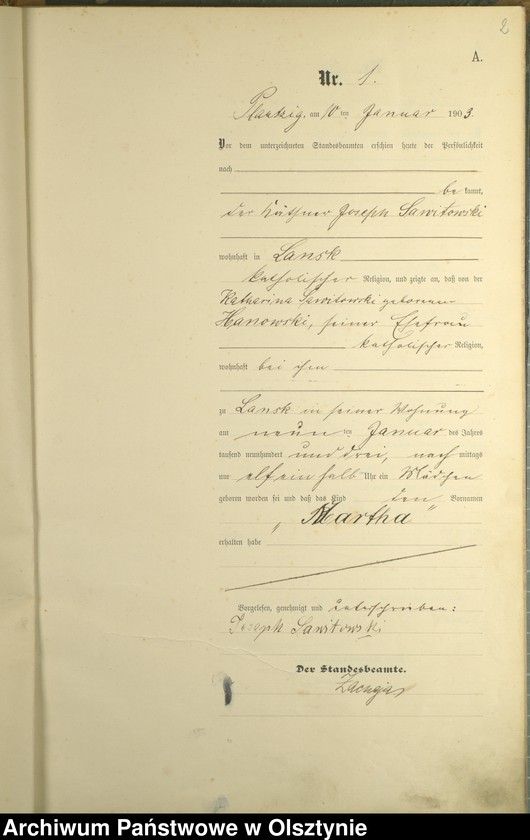 2
A.
Nr. 1.
Plautzig, am 10 ten Januar 1903.
Vor dem unterzeichneten Standesbeamten erschien heute der Persönlichkeit
nach
be kannt,
der Käthner Joseph Sawitowski
wohnhaft in Lansk
katholischer Religion, und zeigte an, daß von der
Katharina Sawitowski geborenen
Hanowski, seiner Ehefrau
katholischer Religion,
wohnhaft bei ihm
zu Lansk in seiner Wohnung
am neun ten Januar des Jahres
tausend neunhundert und drei, nach mittags
um elfeinhalb Uhr ein Mädchen
geboren worden sei und daß das Kind den Vornamen
„Martha“
erhalten habe
Vorgelesen, genehmigt und unterschrieben:
Joseph Sawitowski
Der Standesbeamte.
Archiwum Państwowe w Olsztynie